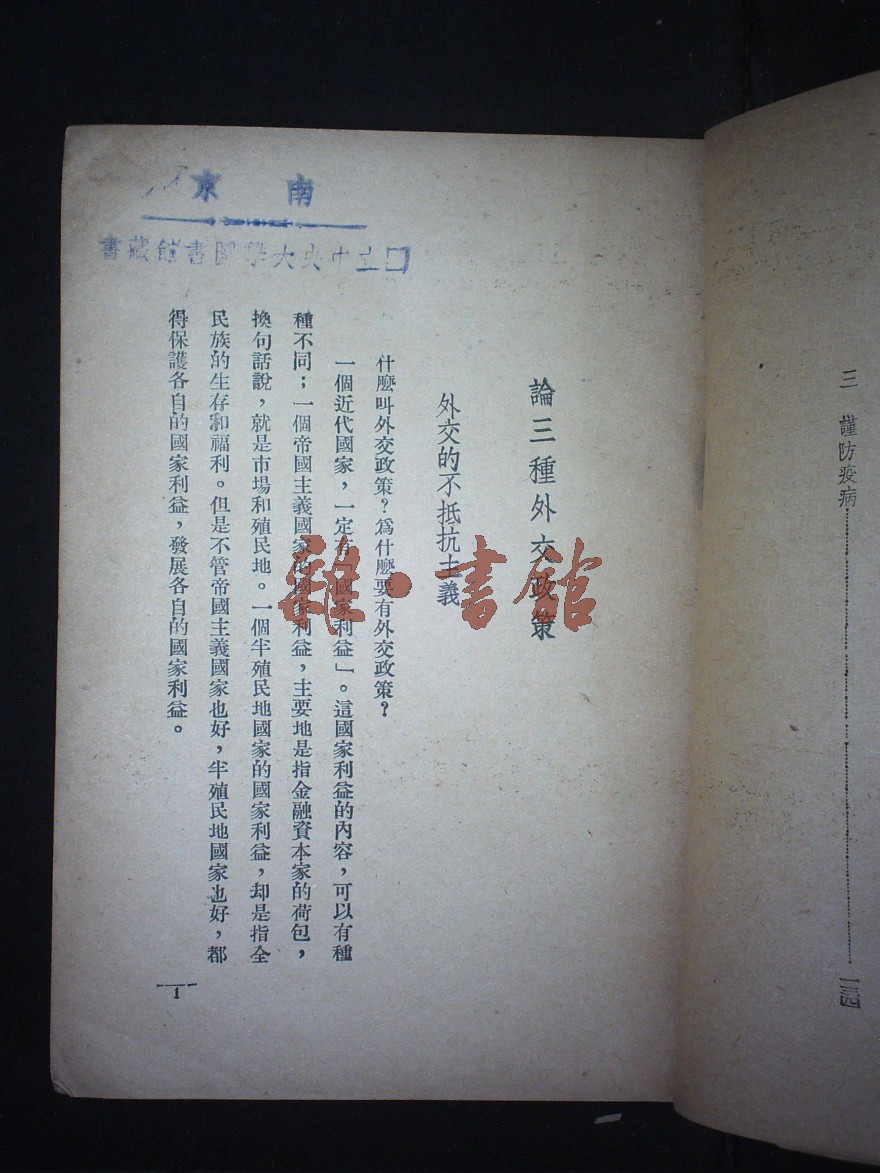 三 謹防疫病……………………………一三四
南京
國立中央大學圖書館藏書
論三種外交政策
外交的不抵抗主義
什麼叫外交政策？爲什麼要有外交政策？
一個近代國家，一定有「國家利益」。這國家利益的內容，可以有種
種不同；一個帝國主義國家的國家利益，主要地是指金融資本家的荷包，
換句話說，就是市場和殖民地。一個半殖民地國家的國家利益，却是指全
民族的生存和福利。但是不管帝國主義國家也好，半殖民地國家也好，都
得保護各自的國家利益，發展各自的國家利益。
1
雜·書館